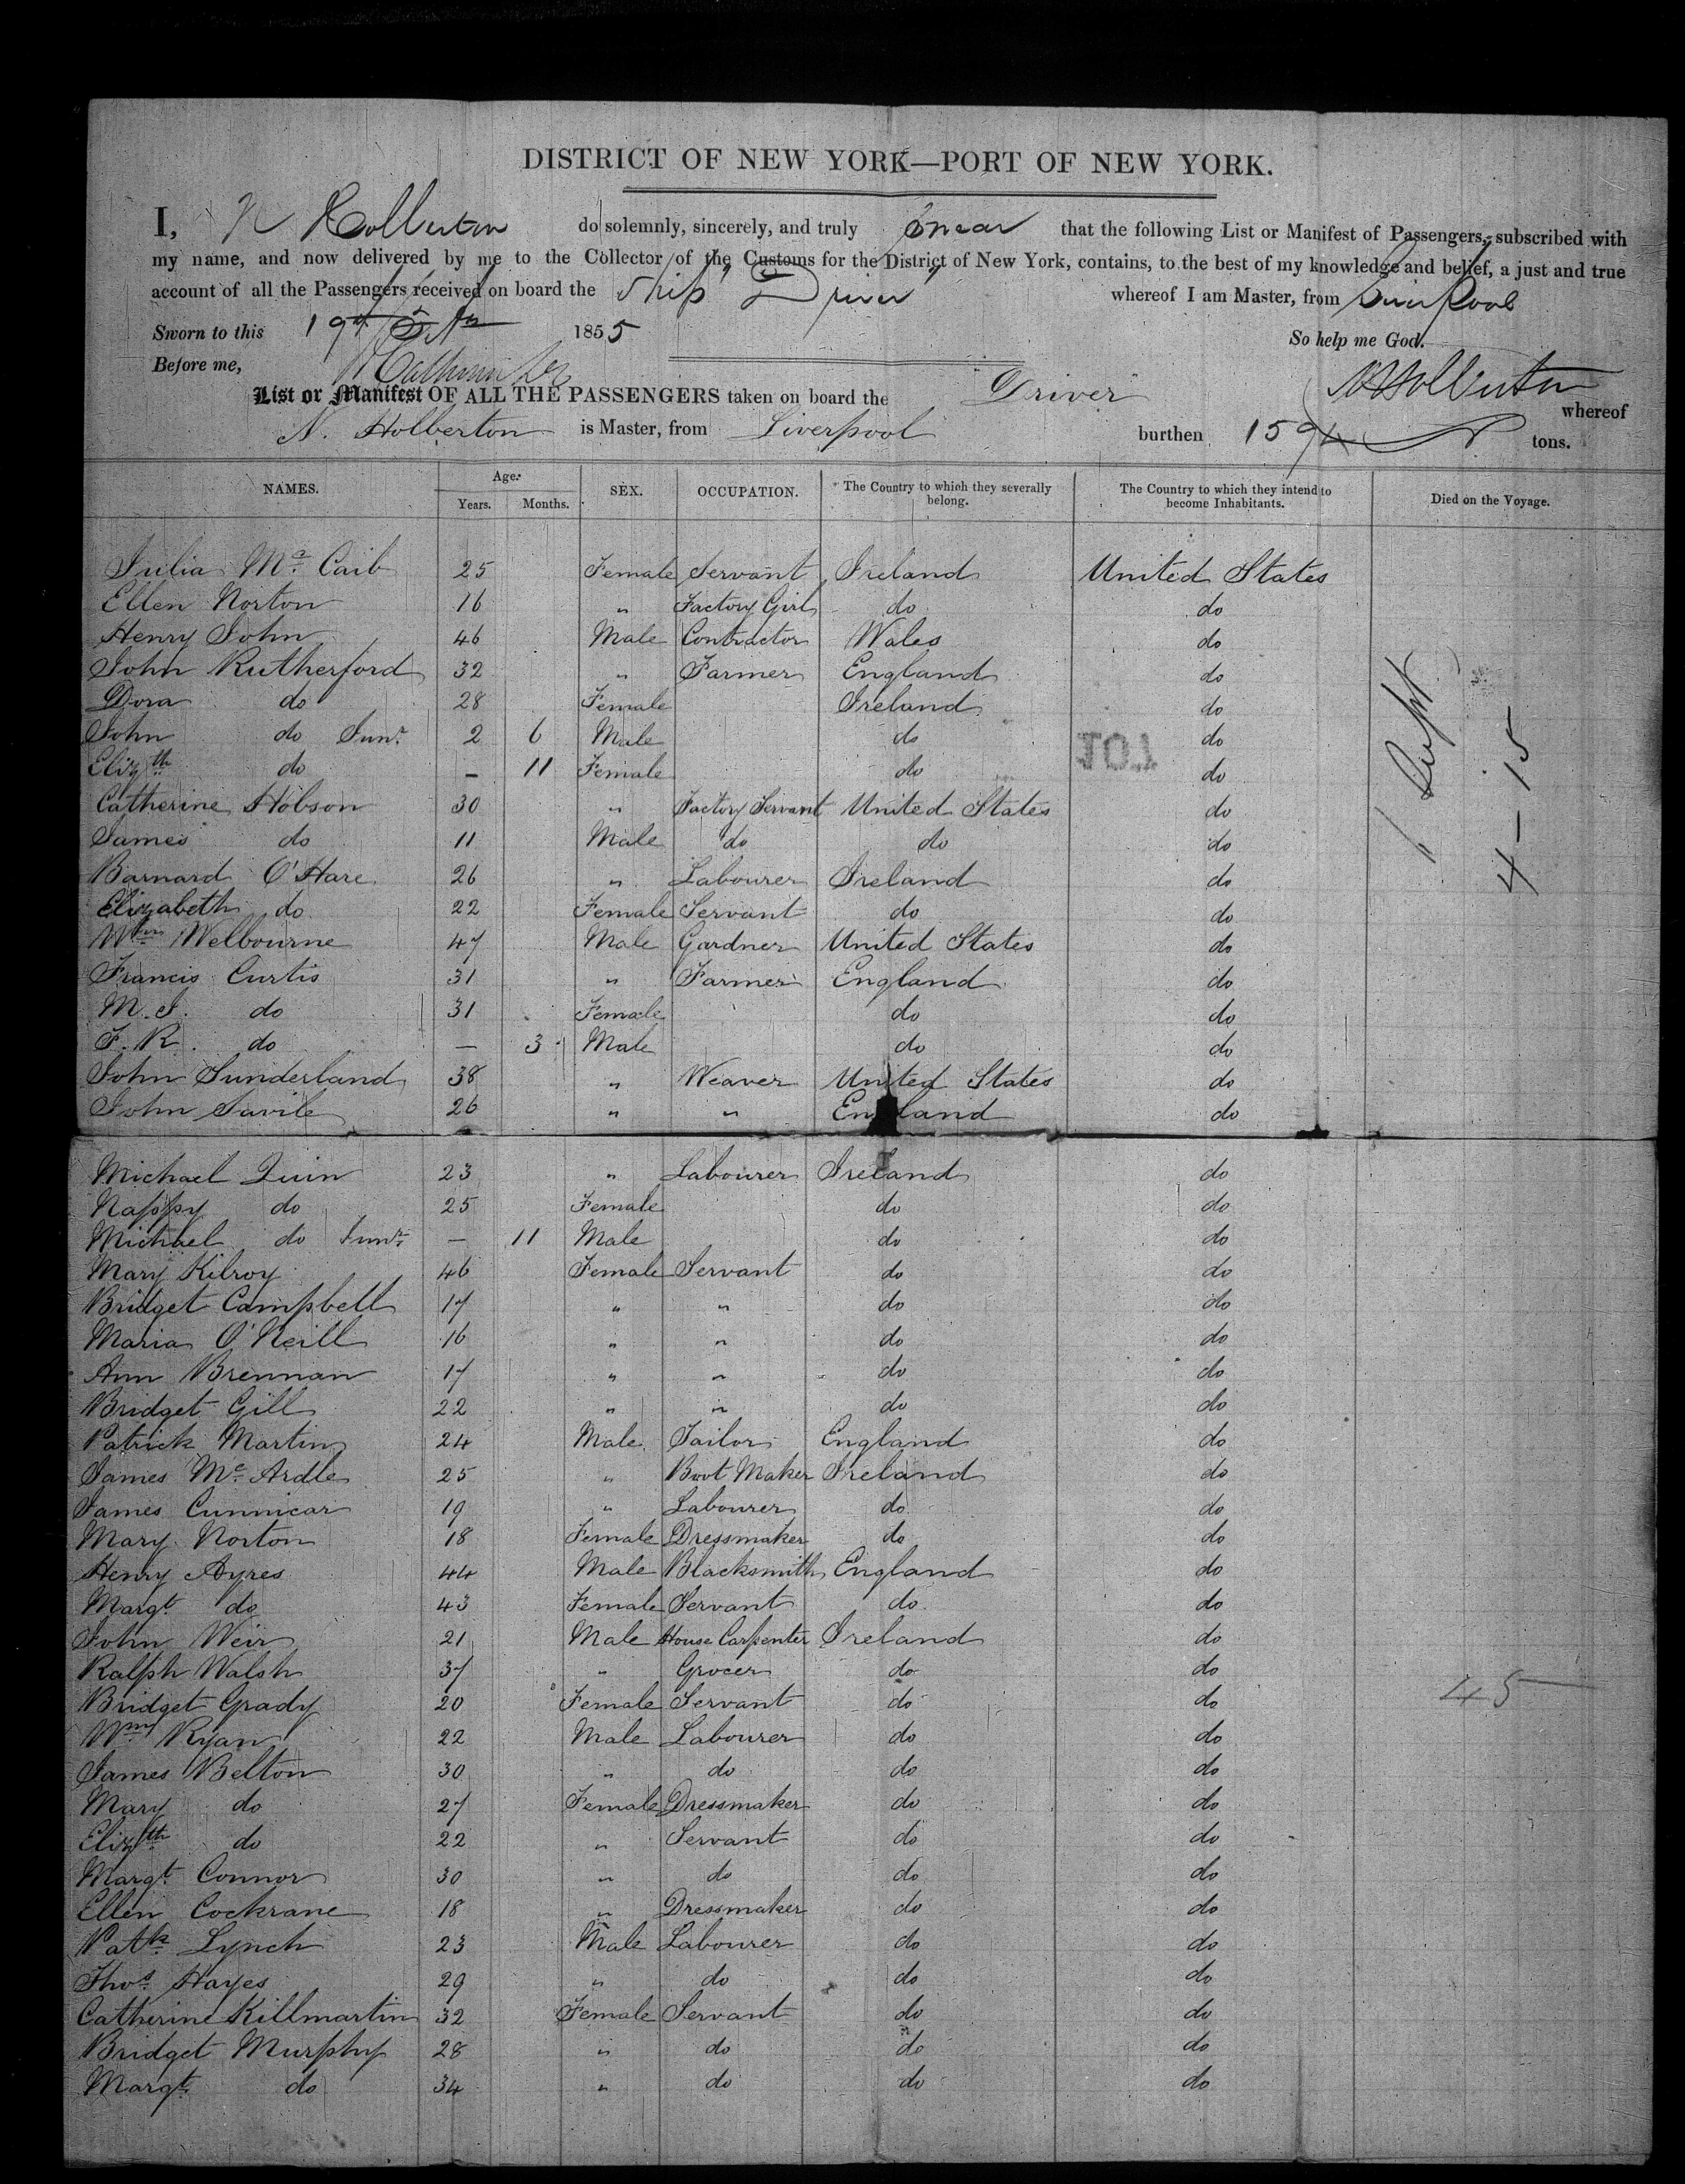 DISTRICT OF NEW YORK—PORT OF NEW YORK.
I, N Holberton do solemnly, sincerely, and truly swear that the following List or Manifest of Passengers, subscribed with
my name, and now delivered by me to the Collector of the Customs for the District of New York, contains, to the best of my knowledge and belief, a just and true
account of all the Passengers received on board the Ship "Driver" whereof I am Master, from Liverpool
Sworn to this 19th 1855 So help me God.
Before me, N Holberton
List or Manifest OF ALL THE PASSENGERS taken on board the "Driver" whereof
N. Holberton is Master, from Liverpool burthen 1594 tons.
NAMES. Age. Years. Months. SEX. OCCUPATION. The Country to which they severally belong. The Country to which they intend to become Inhabitants. Died on the Voyage.
Julia Mc Caib 25 Female Servant Ireland United States
Ellen Norton 16 " Factory Girl do do
Henry John 46 Male Contractor Wales do
John Rutherford 32 " Farmer England do
Dora do 28 Female Ireland do
John do Junr 2 6 Male do do
Elizth do — 11 Female do do
Catherine Hobson 30 " Factory Servant United States do
James do 11 Male do do do
Barnard O'Hare 26 " Labourer Ireland do
Elizabeth do 22 Female Servant do do
Wm Welbourne 47 Male Gardner United States do
Francis Curtis 31 " Farmer England do
M. J. do 31 Female do do
F. R. do — 3 Male do do
John Sunderland 38 " Weaver United States do
John Savile 26 " " England do
Michael Quin 23 " Labourer Ireland do
Nappy do 25 Female do do
Michael do Junr — 11 Male do do
Mary Kilroy 46 Female Servant do do
Bridget Campbell 17 " " do do
Maria O'Neill 16 " " do do
Ann Brennan 17 " " do do
Bridget Gill 22 " " do do
Patrick Martin 24 Male Tailor England do
James Mc Ardle 25 " Boot Maker Ireland do
James Cunnicar 19 " Labourer do do
Mary Norton 18 Female Dressmaker do do
Henry Ayres 44 Male Blacksmith England do
Margt do 43 Female Servant do do
John Weir 21 Male House Carpenter Ireland do
Ralph Walsh 37 " Grocer do do
Bridget Grady 20 Female Servant do do
45
Wm Ryan 22 Male Labourer do do
James Belton 30 " do do do
Mary do 27 Female Dressmaker do do
Elizth do 22 " Servant do do
Margt Connor 30 " do do do
Ellen Cockrane 18 " Dressmaker do do
Patk Lynch 23 Male Labourer do do
Thos Hayes 29 " do do do
Catherine Killmartin 32 Female Servant do do
Bridget Murphy 28 " do do do
Margt do 34 " do do do
4-15